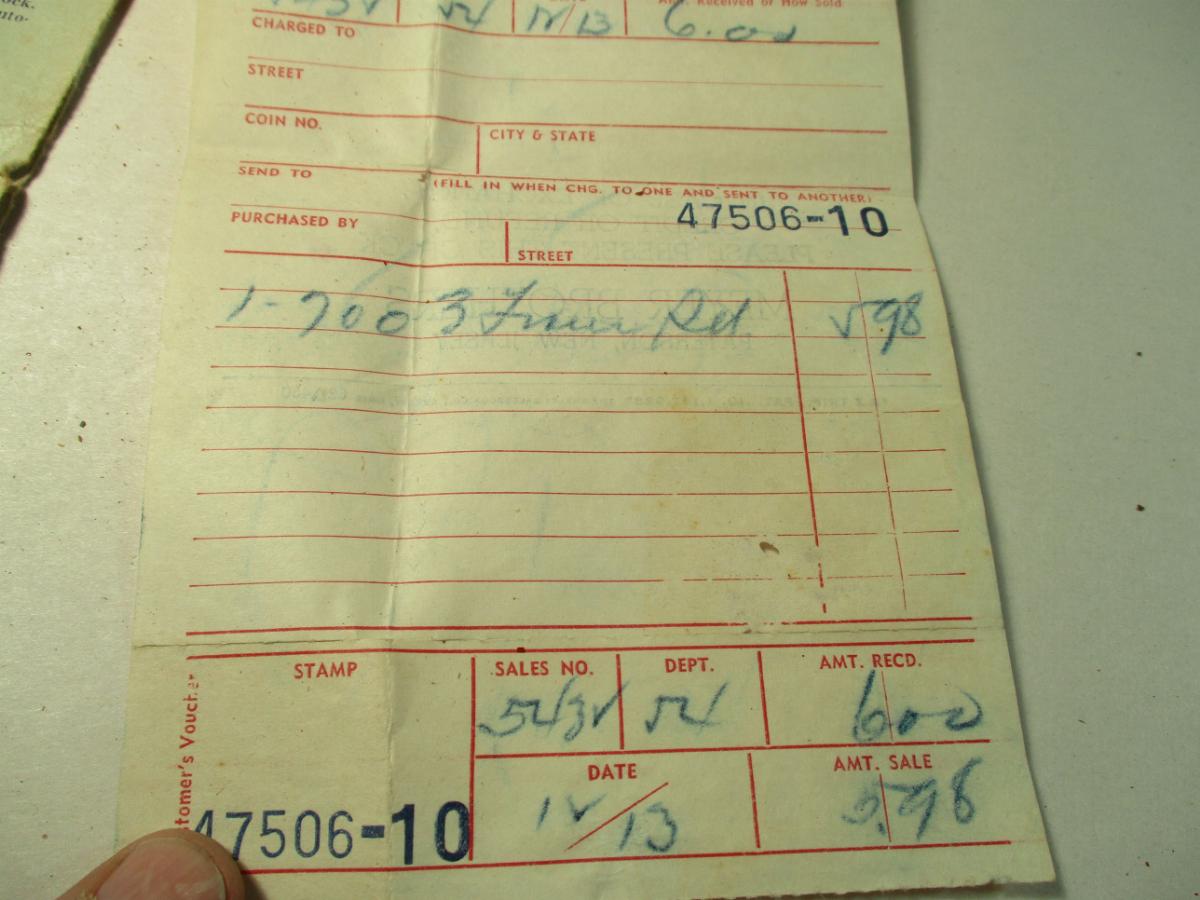 ock.
uto-
5432 54 12/13 6.00
Amt. Received or How Sold
CHARGED TO
STREET
COIN NO. CITY & STATE
SEND TO (FILL IN WHEN CHG. TO ONE AND SENT TO ANOTHER)
47506-10
PURCHASED BY STREET
1- 700 3 Rd 5 98
STAMP SALES NO. DEPT. AMT. RECD.
5432 54 600
DATE AMT. SALE
12/13 5.98
47506-10
tomer's Voucher